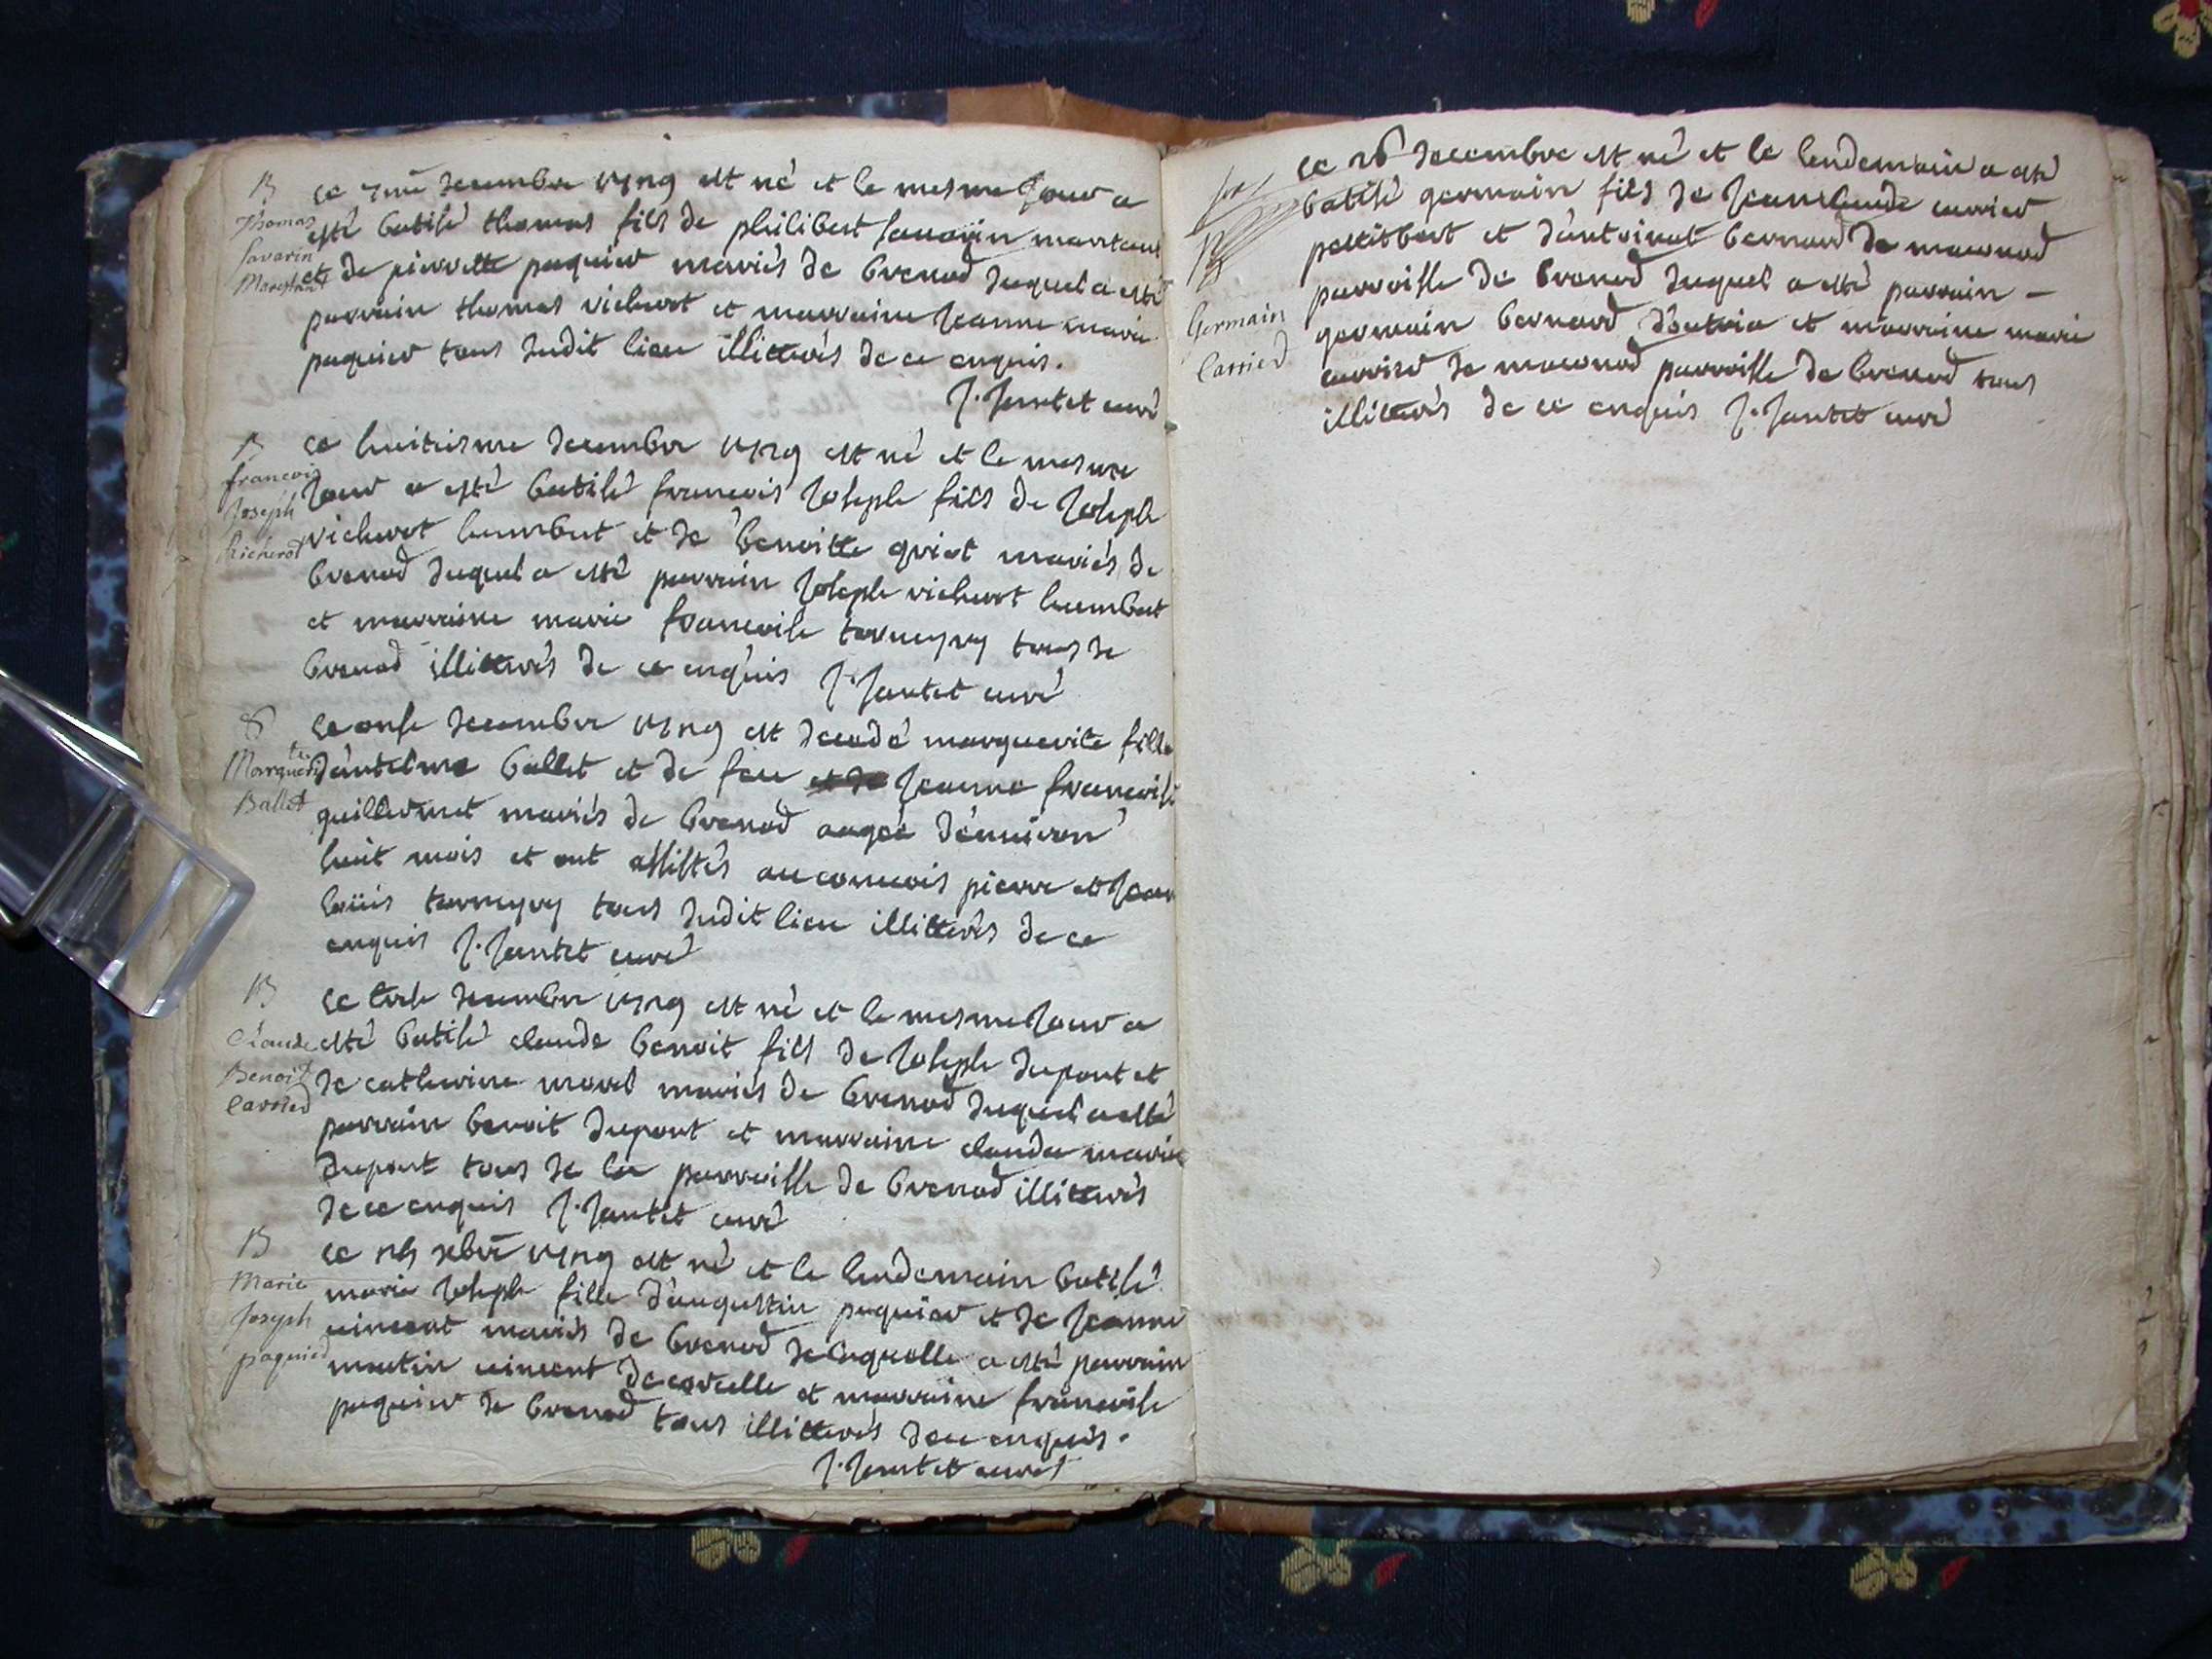 B
Thomas
Savarin
Marestant
ce 7me decembre 1729 est né et le mesme Jour a
esté batisé thomas fils de philibert savarin maretant
et de pierrette paquier mariés de brenod duquel a esté
parrain thomas richerot et marraine Jeanne marie
paquier tous dudit lieu illitterés de ce enquis.
J. Jantet curé
B
francois
Joseph
Richerot
ce huitiesme decembre 1729 est né et le mesme
Jour a esté batisé francois Joseph fils de Joseph
richerot humbert et de benoitte quiot mariés de
brenod duquel a esté parrain Joseph richerot humbert
et marraine marie francoise torneyry tous de
brenod illitterés de ce enquis J. Jantet curé
Marguerite
Ballet
ce onse decembre 1729 est decedé marguerite fille
d'antelme ballet et de feu et de Jeanne francoise
guillermet mariés de brenod aagée d'environ
huit mois et ont assistés au convois pierre et Jean
loüis torneyry tous dudit lieu illitterés de ce
enquis J. Jantet curé
B
Claude
Benoit
Carried
ce trese decembre 1729 est né et le mesme Jour a
esté batisé claude benoit fils de Joseph dupont et
de catherine morel mariés de brenod duquel a esté
parrain benoit dupont et marraine clauda marie
dupont tous de la parroisse de brenod illitterés
de ce enquis J. Jantet curé
B
Marie
Joseph
paquied
ce xbre 1729 est né et le lendemain batisé
marie Joseph fille d'augustin paquier et de Jeanne
vincent mariés de brenod de laquelle a esté parrain
martin vincent de corcelle et marraine francoise
paquier de brenod tous illitterés de ce enquis.
J. Jantet curé
B
Germain
Carried
ce 28 decembre est né et le lendemain a esté
batisé germain fils de Jeanclaude carrier
pettitbert et d'antoinat bernard de maconod
parroisse de brenod duquel a esté parrain -
germain bernard d'outria et marraine marie
carrier de maconod parroisse de brenod tous
illitterés de ce enquis J. Jantet curé